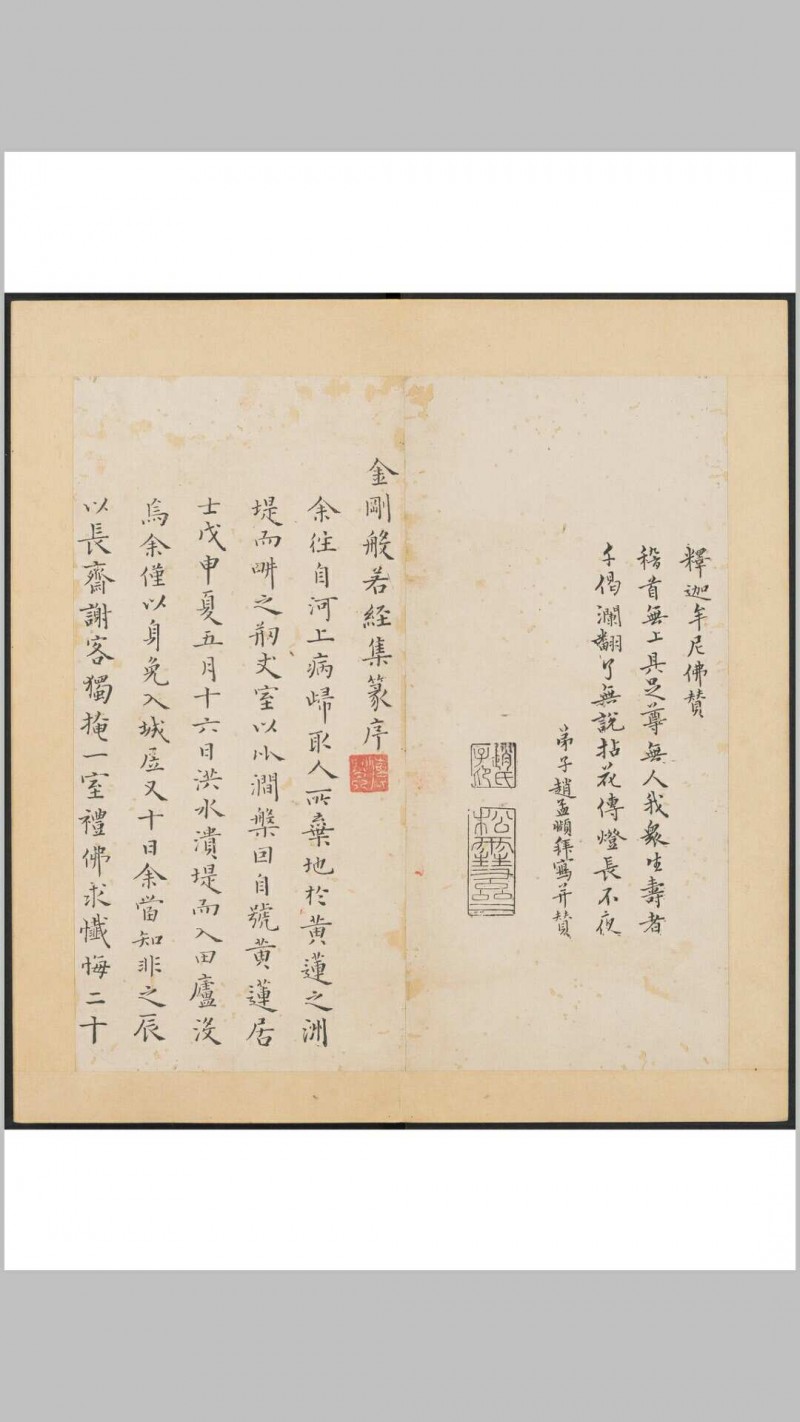 釋迦牟尼佛賛
稽首無上具足尊無人我衆生壽者
千偈瀾翻了無說拈花傳燈長不夜
弟子趙孟頫拜寫并賛
趙氏子昂
松雪齋
金剛般若經集篆序
余往自河上病歸取人所棄地於黃蓮之洲
堤而畊之剏丈室以小澗槃回自號黃蓮居
士戊申夏五月十六日洪水潰堤而入田廬没
焉余僅以身免入城居又十日余當知非之辰
以長齋謝客獨掩一室禮佛求懺悔二十